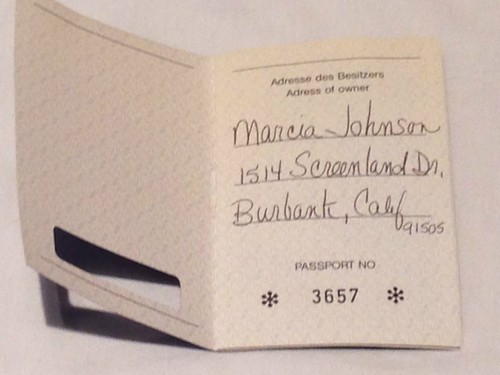 Adresse des Besitzers
Adress of owner
Marcia Johnson
1514 Screenland Dr,
Burbank, Calif
91505
PASSPORT NO
* 3657 *